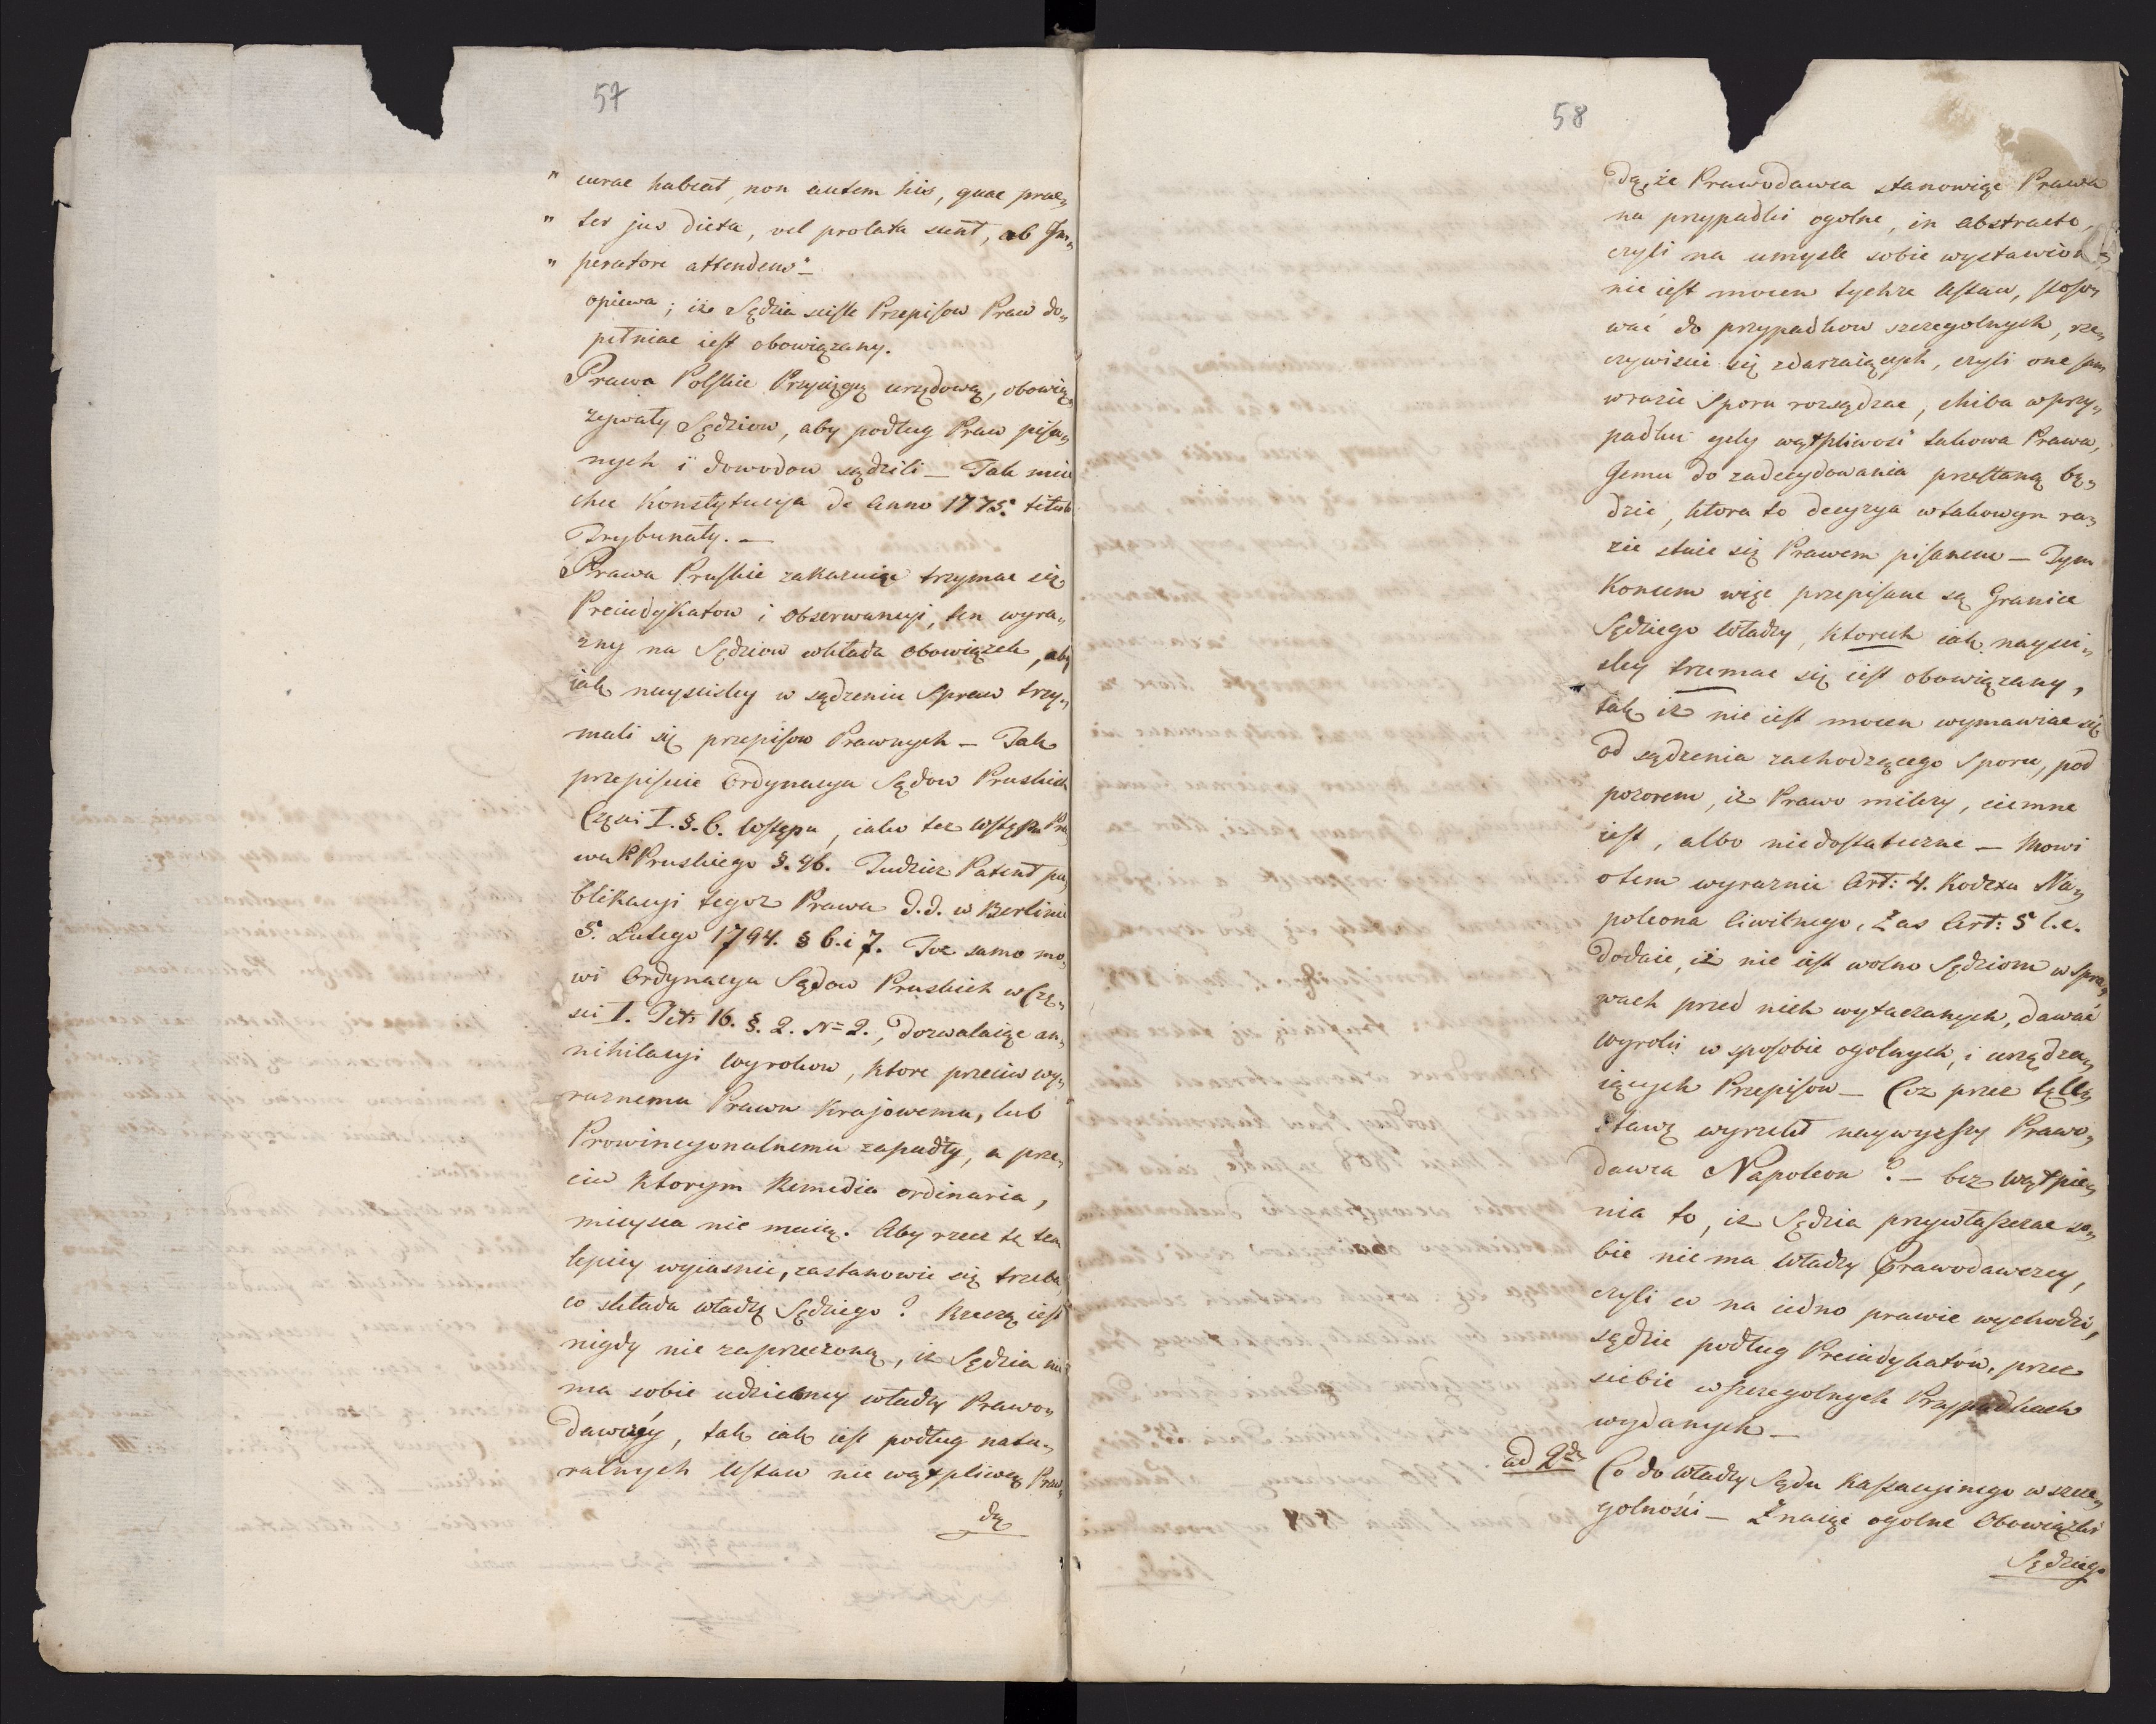 57
„ curae habeat, non autem his, quae prae„
„ ter jus dicta, vel prolata sunt, ab Im„
„ peratore attendem“ —
opiewa; iże Sędzia scisle Przepisow Praw do„
pełniac iest obowiązany.
Prawa Polskie Przysięgą urzędową, obowią„
zywały Sędziow, aby podług Praw pisa„
nych i dowodow sądzili — Tak miec
chce Konstytucya de Anno 1775. titulo
Trybunały. —
Prawa Pruskie zakazuiąc trzymac się
Preiudykatow i Obserwancyi, ten wyra„
zny na Sędziow wkłada obowiązek, aby
iak nayscisley w sądzeniu Spraw trzy„
mali się przepisow Prawnych — Tak
przepisuie Ordynacya Sądow Pruskich
Częsci I. §. 6. Wstępu, iako tez Wstępu Pra„
wa P. Pruskiego §. 46. Tudziez Patent pu„
blikacyi tegoz Prawa d.d. w Berlinie
5. Lutego 1794. § 6. i 7. Toz samo mo„
wi Ordynacya Sądow Pruskich w Czę„
sci I. Tit: 16. §. 2. No 2., dozwalaiąc an„
nihilacyi Wyrokow, ktore przeciw wy„
raznemu Prawu Krajowemu, lub
Prowincyonalnemu zapadły, a prze„
ciw ktorym Remedia ordinaria,
mieysca nie maią. Aby rzecz tę tem
lepiey wyiasnic, zastanowic się trzeba,
co składa władzę Sędziego? Rzeczą iest
nigdy nie zaprzeczoną, iz Sędzia nie
ma sobie udzielney władzy Prawo„
dawczey, tak iak iest podług natu„
ralnych Ustaw nie wątpliwą Praw„
dą
58
dą, że Prawodawca stanowiąc Prawa
na przypadki ogolne, in abstracto,
czyli na umysle sobie wystawione
nie iest mocen tychze Ustaw, stoso„
wać do przypadkow szczegolnych, rze„
czywiscie się zdarzaiących, czyli one sam
w razie Sporu rozsądzac, chiba w przy„
padku gdy wątpliwosć takowa Prawa,
Jemu do zadecydowania przesłaną bę„
dzie, ktora to decyzya w takowym ra„
zie staie się Prawem pisanem — Tym
Koncem więc przepisane są Granice
Sędziego Władzy, ktorych iak naysci„
sley trzmac się iest obowiązany,
tak iz nie iest mocen wymawiac się
od sądzenia zachodzącego Sporu, pod
pozorem, iz Prawo milczy, ciemne
iest, albo niedostateczne — Mowi
otem wyraznie Art: 4. Kodexu Na„
poleona Ciwilnego, Zas Art: 5 l.c.
dodaie, iz nie iest wolno Sędziom w Spra„
wach przed nich wytaczanych, dawać
Wyroki w sposobie ogolnych, i urządza„
iących Przepisow — Coz przez tę U„
stawę wyrzekł naywyzszy Prawo„
dawca Napoleon? — bez wątpie„
nia to, iz Sędzia przywłaszczac so„
bie nie ma Władzy Prawodawczey,
czyli co na iedno prawie wychodzi,
sądzic podług Preiudykatow, przez
siebie w szczegolnych Przypadkach
wydanych —
ad 2do Co do Władzy Sądu Kassacyinego w szcze„
golności — Znaiąc ogolne Obowiązki
Sędziego